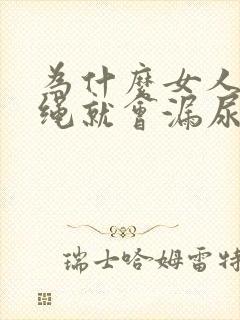 为什麽女人
绳就会漏尿
瑞士哈姆雷特